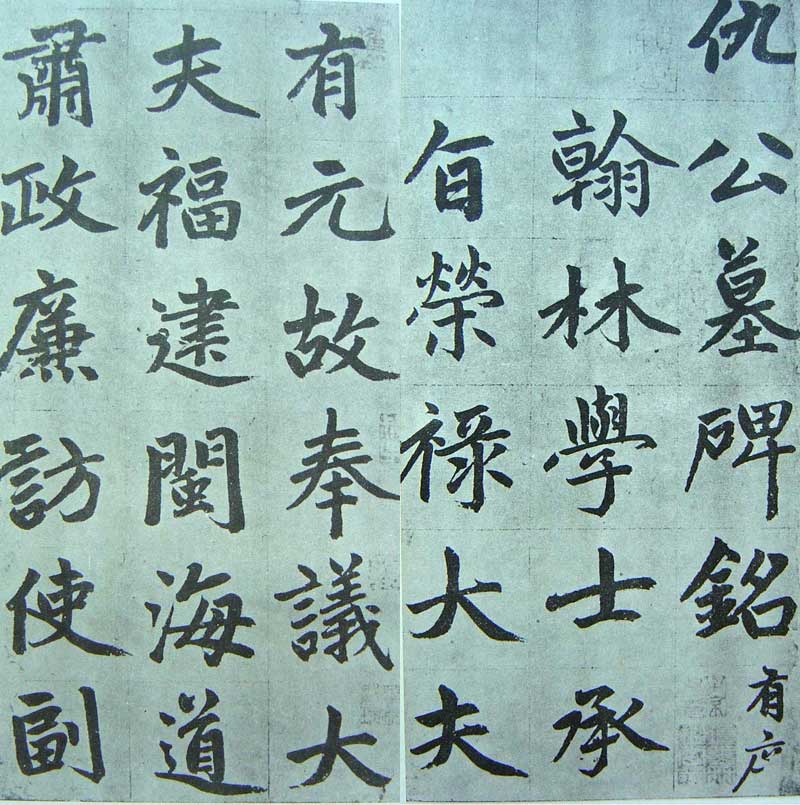 有元故奉議大
夫福建閩海道
肅政廉訪使副
仇公墓碑銘有序
翰林學士承
旨榮祿大夫